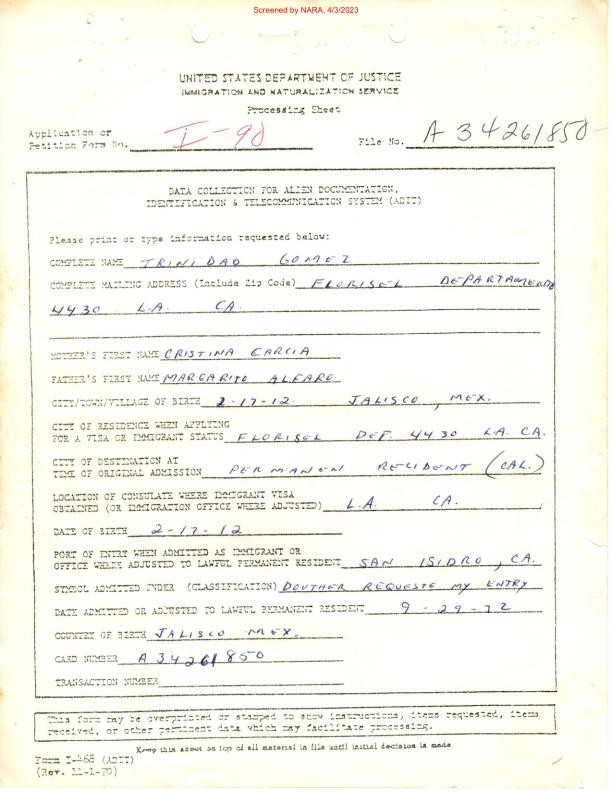 Screened by NARA, 4/3/2023
UNITED STATES DEPARTMENT OF JUSTICE
IMMIGRATION AND NATURALIZATION SERVICE
Processing Sheet
Application or
Petition Form No. I-90 File No. A 34261850
DATA COLLECTION FOR ALIEN DOCUMENTATION,
IDENTIFICATION & TELECOMMUNICATION SYSTEM (ADIT)
Please print or type information requested below:
COMPLETE NAME TRINIDAD GOMEZ
COMPLETE MAILING ADDRESS (Include Zip Code) FLORISEL DEPARTAMENTO
4430 L.A. CA.
MOTHER'S FIRST NAME CRISTINA GARCIA
FATHER'S FIRST NAME MARGARITO ALFARO
CITY/TOWN/VILLAGE OF BIRTH 2-17-12. JALISCO, MEX.
CITY OF RESIDENCE WHEN APPLYING
FOR A VISA OR IMMIGRANT STATUS FLORISEL DEF. 4430 L.A. CA.
CITY OF DESTINATION AT
TIME OF ORIGINAL ADMISSION PERMANEN RECIDENT (CAL.)
LOCATION OF CONSULATE WHERE IMMIGRANT VISA
OBTAINED (OR IMMIGRATION OFFICE WHERE ADJUSTED) L.A. CA.
DATE OF BIRTH 2-17-12
PORT OF ENTRY WHEN ADMITTED AS IMMIGRANT OR
OFFICE WHERE ADJUSTED TO LAWFUL PERMANENT RESIDENT SAN ISIDRO, CA.
SYMBOL ADMITTED UNDER (CLASSIFICATION) DOUTHER REQUESTE MY ENTRY
DATE ADMITTED OR ADJUSTED TO LAWFUL PERMANENT RESIDENT 9-29-72
COUNTRY OF BIRTH JALISCO MEX.
CARD NUMBER A 34261850
TRANSACTION NUMBER
This form may be overprinted or stamped to show instructions, items requested, items
received, or other pertinent data which may facilitate processing.
Keep this sheet on top of all material in file until initial decision is made
Form I-468 (ADIT)
(Rev. 11-1-70)